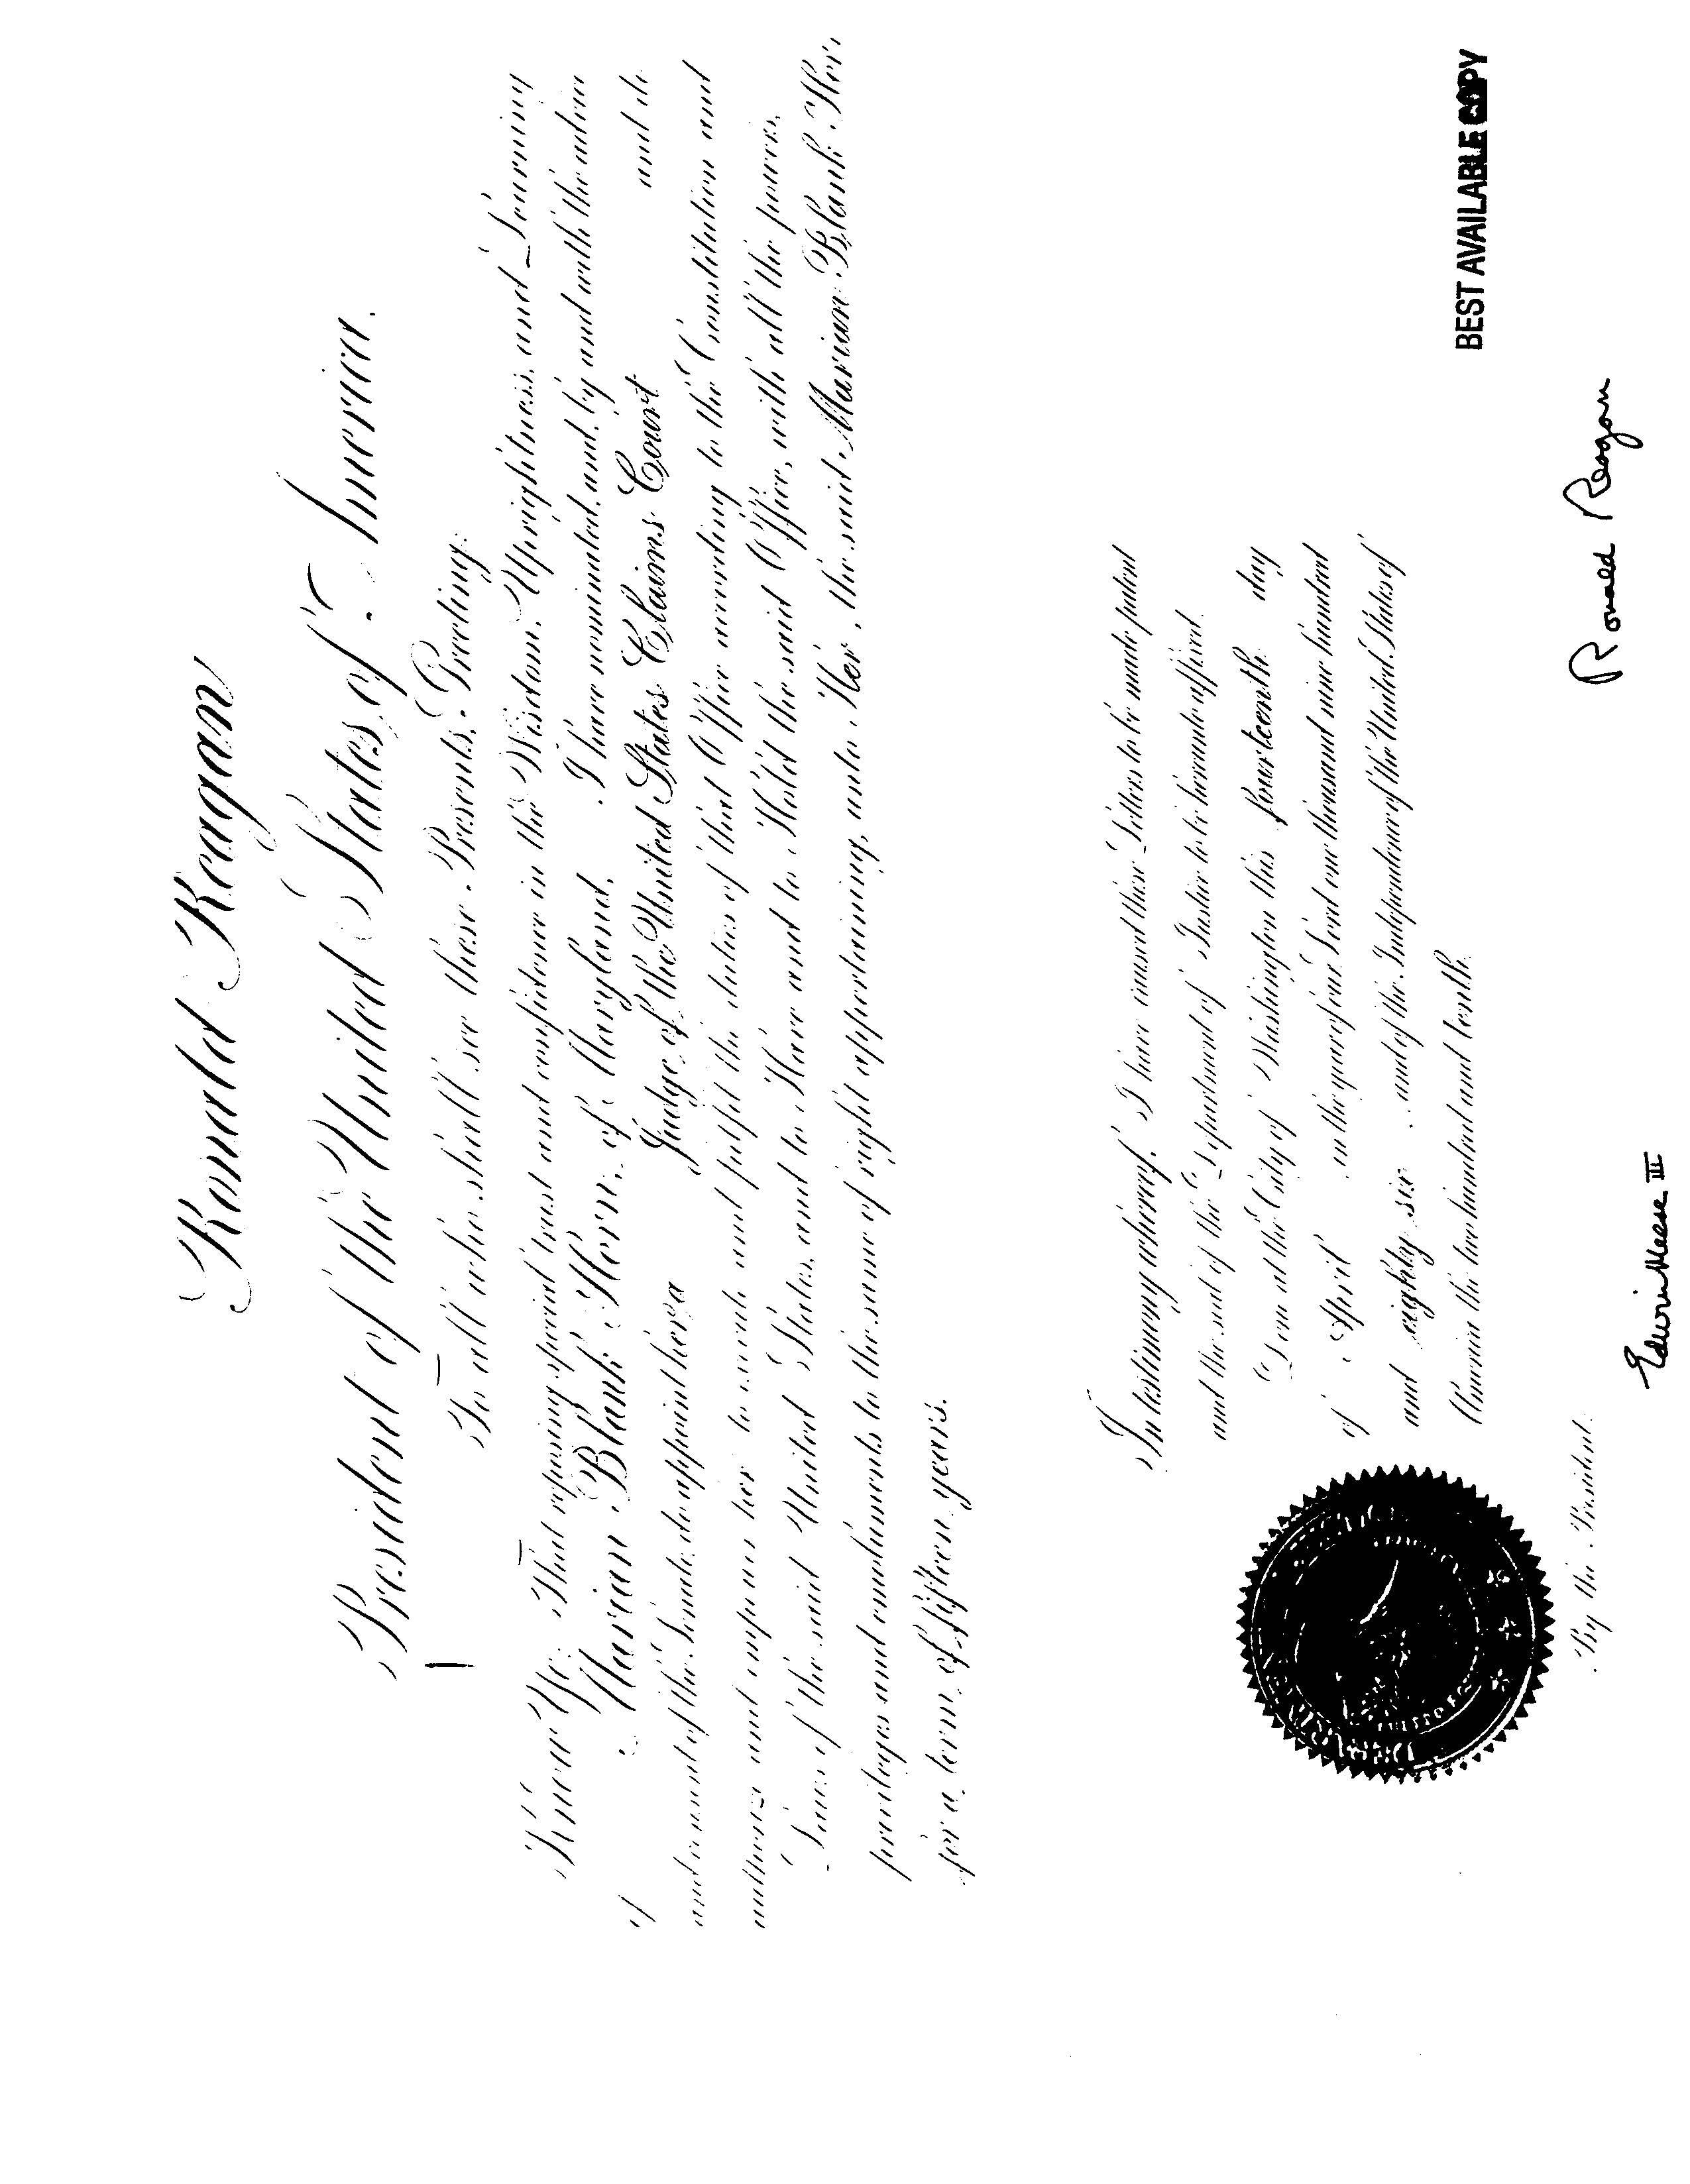 Ronald Reagan
President of the United States of America.
To all who shall see these Presents, Greeting:
Know Ye; That reposing special trust and confidence in the Wisdom, Uprightness, and Learning
of Marian Blank Horn, of Maryland, I have nominated, and, by and with the advice
and consent of the Senate, do appoint her a Judge of the United States Claims Court and do
authorize and empower her to execute and fulfil the duties of that Office according to the Constitution and
Laws of the said United States, and to Have and to Hold the said Office, with all the powers,
privileges and emoluments to the same of right appertaining, unto Her, the said Marian Blank Horn
for a term of fifteen years.
In testimony whereof, I have caused these Letters to be made patent
and the seal of the Department of Justice to be hereunto affixed.
Done at the City of Washington this fourteenth day
of April in the year of our Lord one thousand nine hundred
and eighty-six and of the Independence of the United States of
America the two hundred and tenth.
BEST AVAILABLE COPY
Ronald Reagan
By the President:
Edwin Meese III